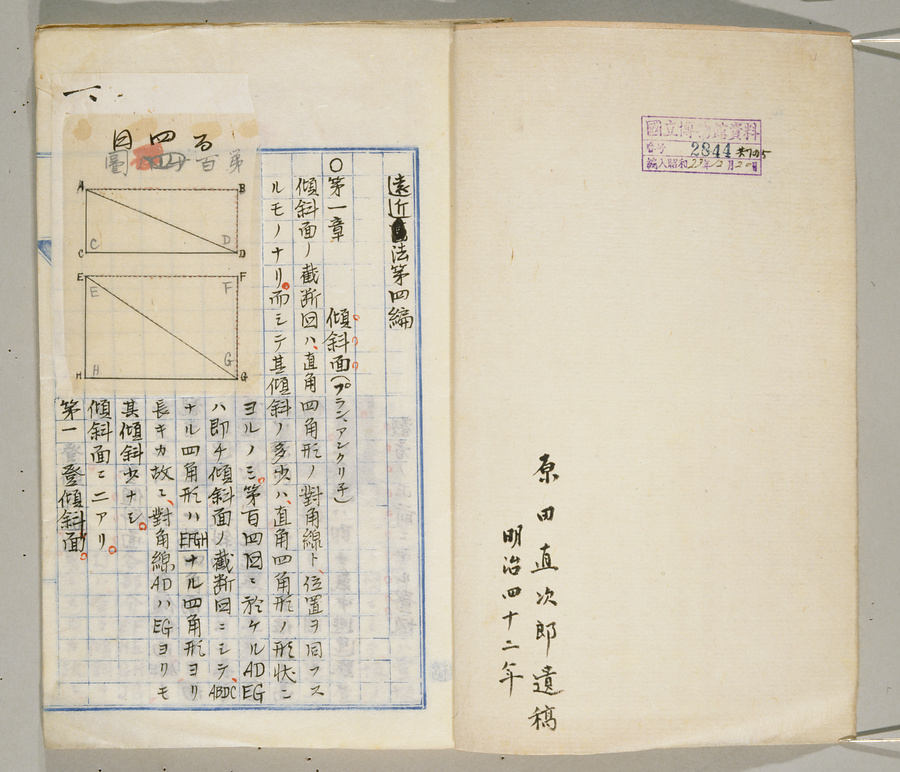 國立博物館資料
番号 2844 共705
編入昭和23年12月20日
原田直次郎遺稿
明治四十二年
遠近法第四編
〇第一章 傾斜面(プラン、アンクリ子)
傾斜面ノ截断図ハ、直角四角形ノ對角線ト、位置ヲ同フス
ルモノナリ。而シテ其傾斜ノ多少ハ、直角四角形ノ形状ニ
ヨルノミ。第百四図ニ於ケルAD EG
ハ即チ傾斜面ノ截断図ニシテ、ABDC
ナル四角形ハEFGHナル四角形ヨリ
長キカ故ニ、對角線ADハEGヨリモ
其傾斜少ナシ。
傾斜面ニ二アリ。
第一 登傾斜面。
一、
第百四
A B
C D
C D
E F
E F
G
H H G